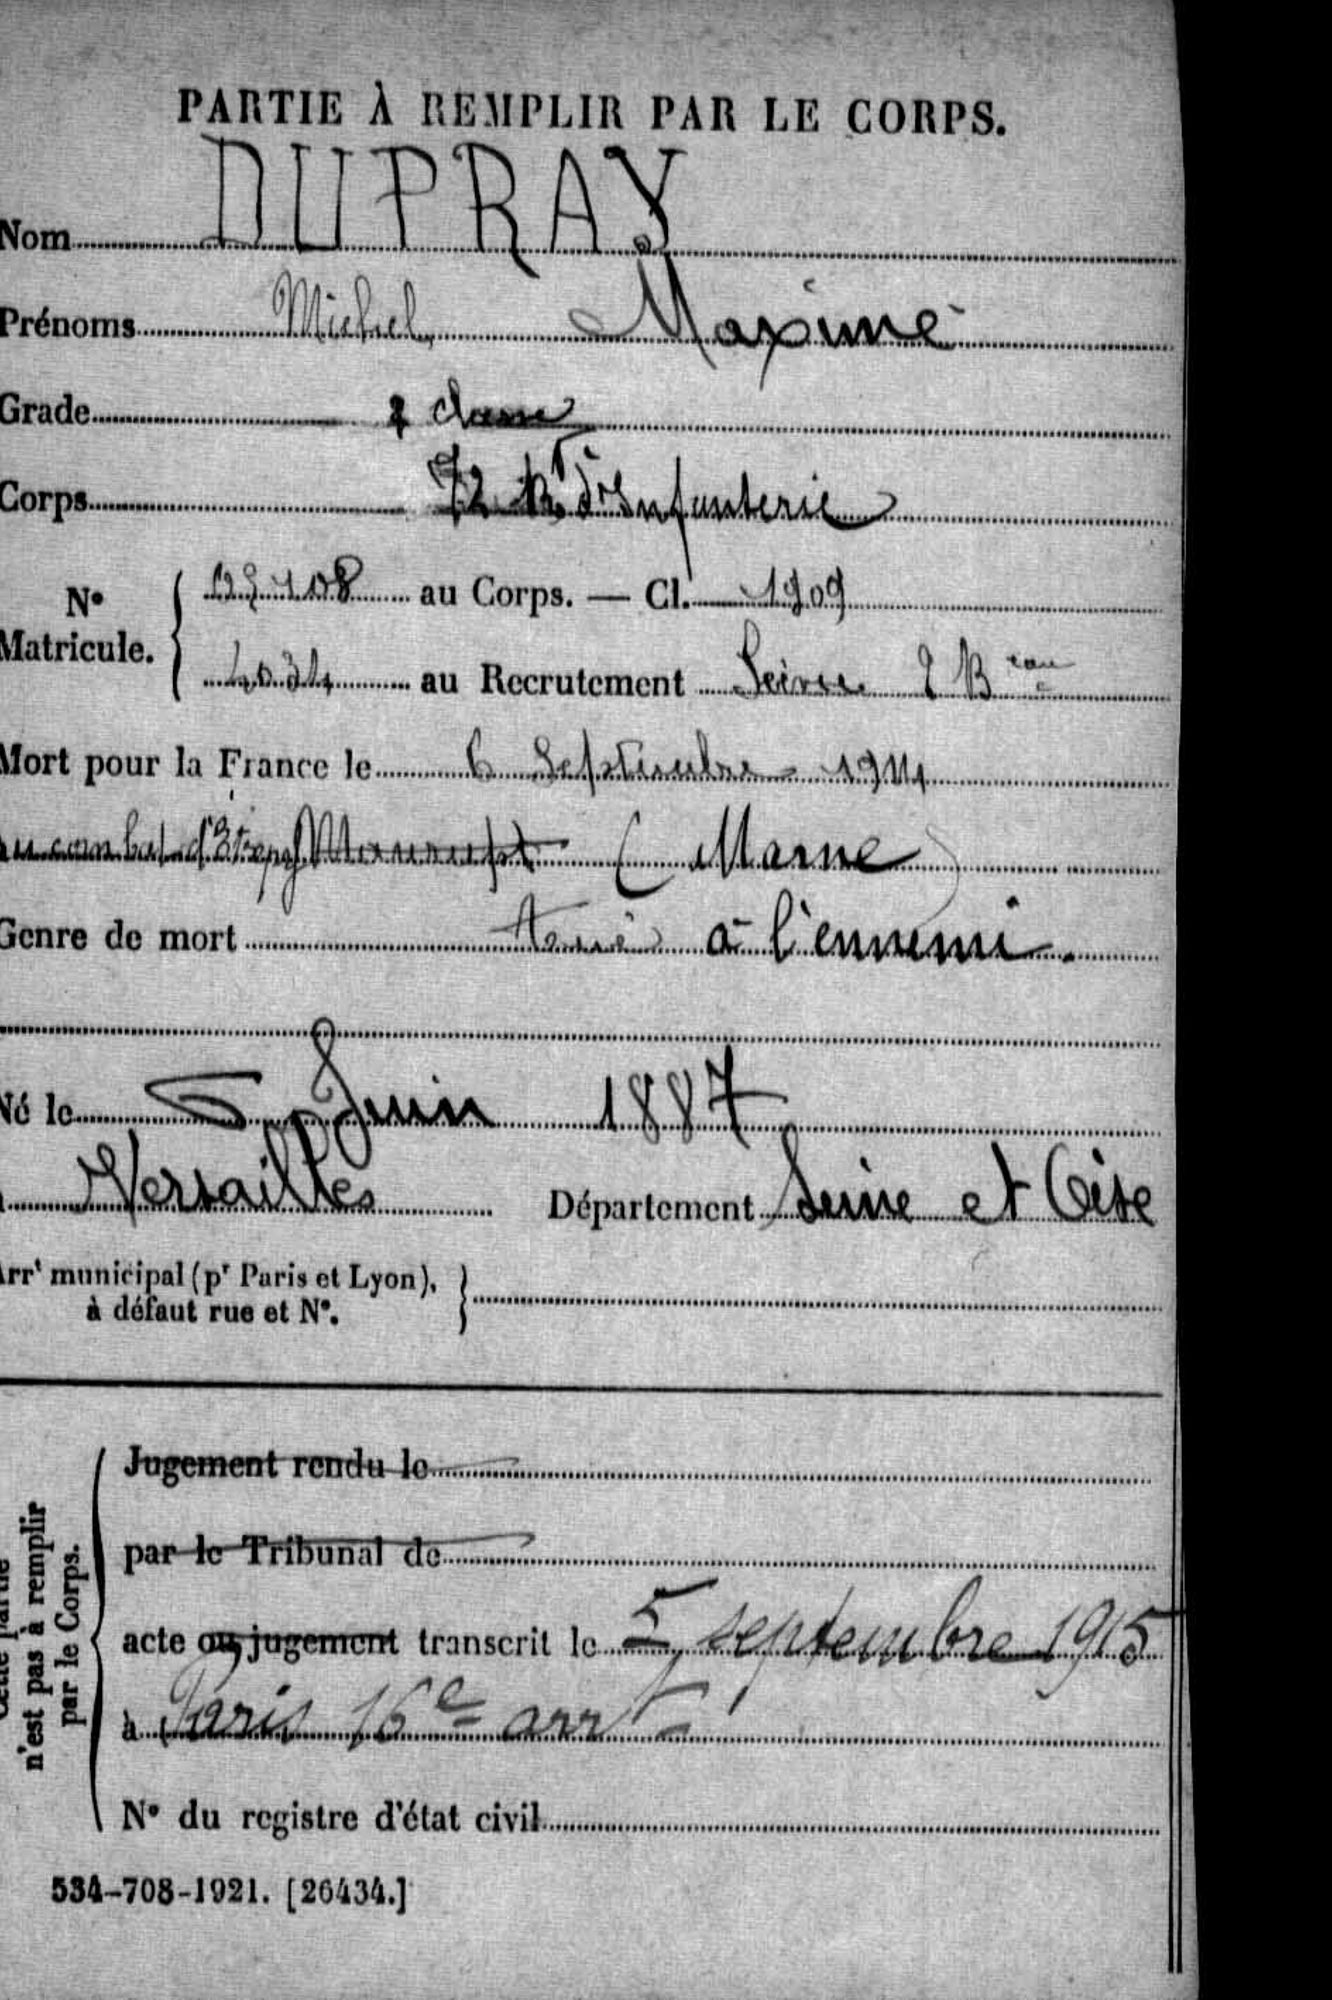 PARTIE À REMPLIR PAR LE CORPS.
Nom DUPRAY
Prénoms Michel Maxime
Grade 2 classe
Corps 72 Rt d'Infanterie
N° Matricule. au Corps. — Cl. 1909
4034 au Recrutement Seine 2 Beau
Mort pour la France le 6 Septembre 1914
au combat d'Etrepy Maurupt (Marne)
Genre de mort tué à l'ennemi.
Né le 5 Juin 1887
Versailles Département Seine et Oise
Arrt municipal (pr Paris et Lyon),
à défaut rue et N°.
Cette partie
n'est pas à remplir
par le Corps.
Jugement rendu le
par le Tribunal de
acte ou jugement transcrit le 5 septembre 1915
à Paris 16e arrt
N° du registre d'état civil
534-708-1921. [26434.]